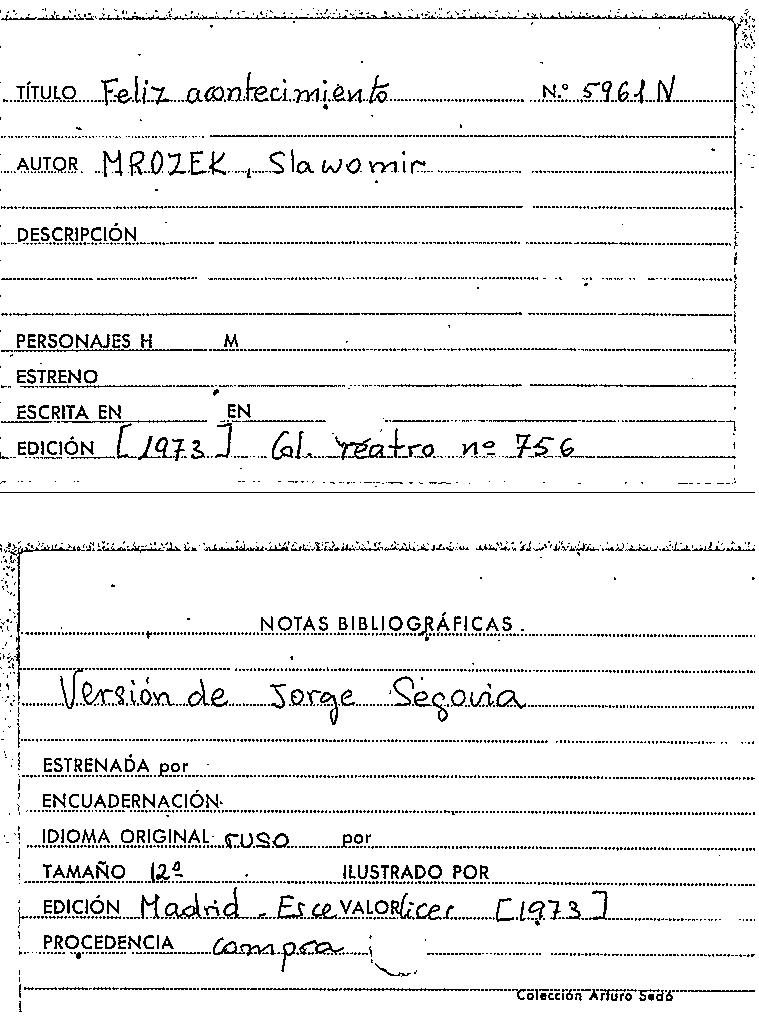 TÍTULO Feliz acontecimiento N.º 5961 N
AUTOR MROZEK, Slawomir
DESCRIPCIÓN
PERSONAJES H M
ESTRENO
ESCRITA EN EN
EDICIÓN [1973] Col. teatro nº 756
NOTAS BIBLIOGRÁFICAS
Versión de Jorge Segovia
ESTRENADA por
ENCUADERNACIÓN
IDIOMA ORIGINAL ruso por
TAMAÑO 12º ILUSTRADO POR
EDICIÓN Madrid - Esce VALOR licer [1973]
PROCEDENCIA compra
Colección Arturo Sedó